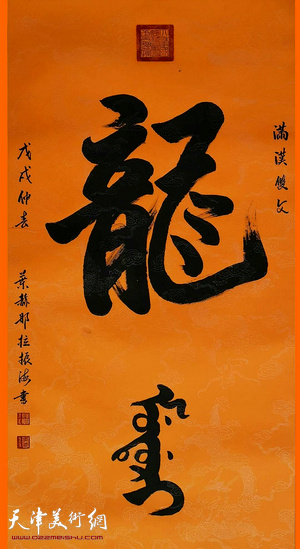 满漢雙文
龍
戊戌仲春
葉赫那拉振海書
天津美術網
www.022meishu.com